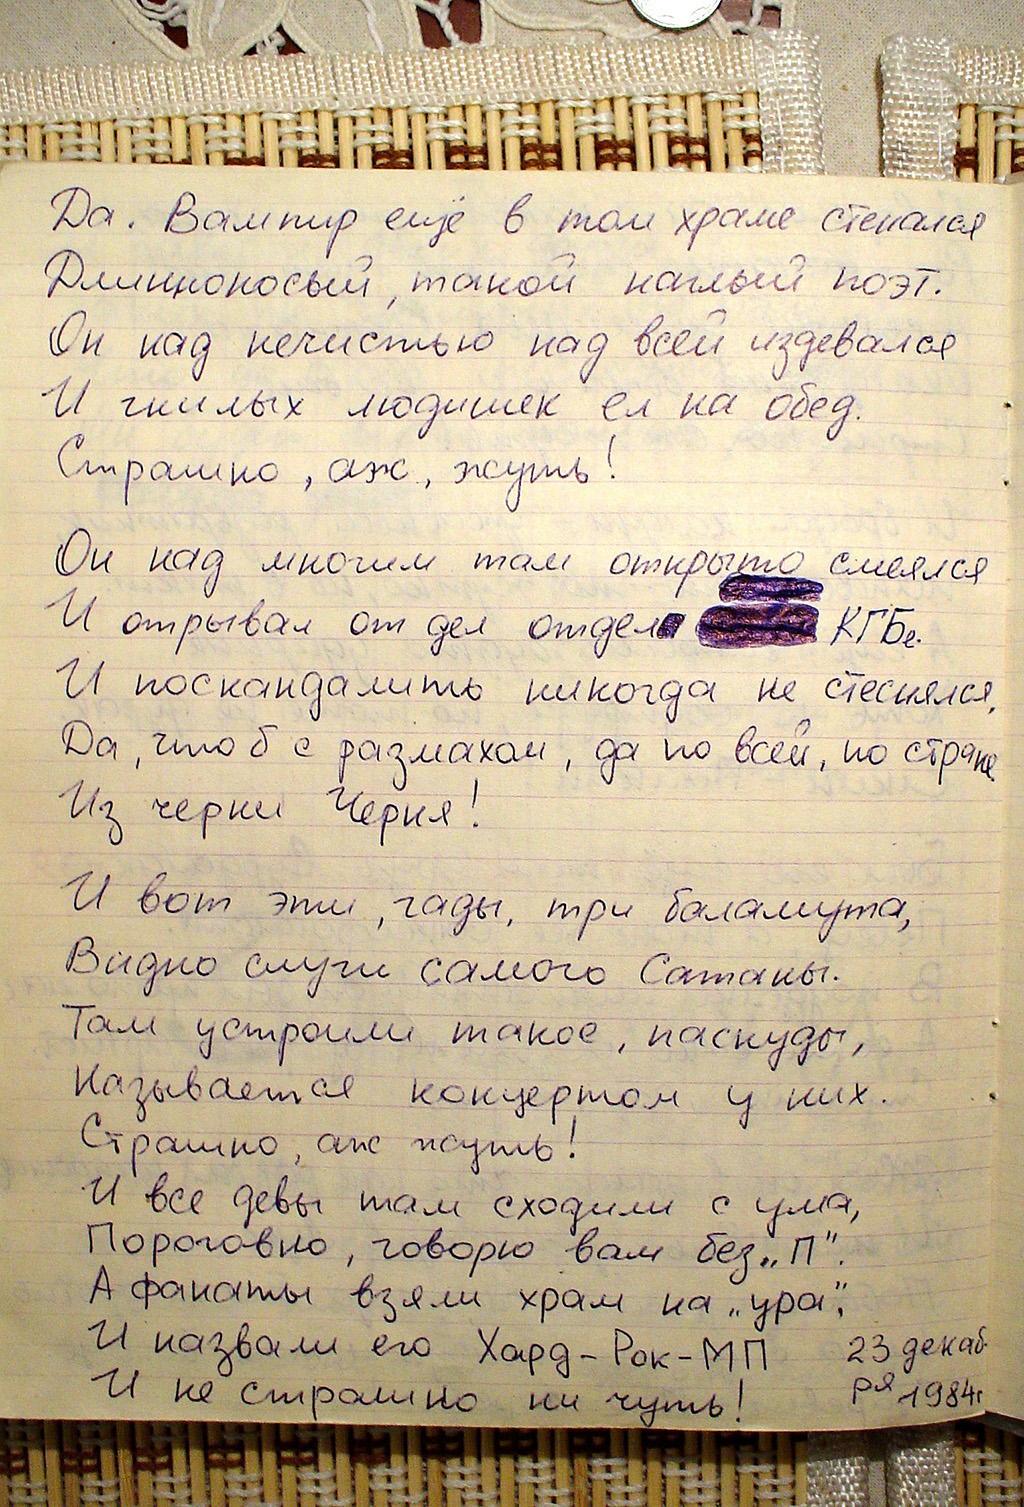 Да. Вампир ещё в том храме степался
Длинноносый, такой наглый поэт.
Он над нечистью над всей издевался
И гнилых людишек ел на обед.
Страшно, аж, жуть!
Он над многим там открыто смеялся
И отрывал от дел отдел КГБе.
И поскандалить никогда не стеснялся,
Да, что б с размахом, да по всей, по стране
Из черни Черня!
И вот эти, гады, три баламута,
Видно слуги самого Сатаны.
Там устроили такое, паскуды,
Называется концертом у них.
Страшно, аж жуть!
И все девы там сходили с ума,
Пороговно, говорю вам без „П".
А фанаты взяли храм на „ура",
И назвали его Хард-Рок-МП
И не страшно ни чуть!
23 декаб
ря 1984г